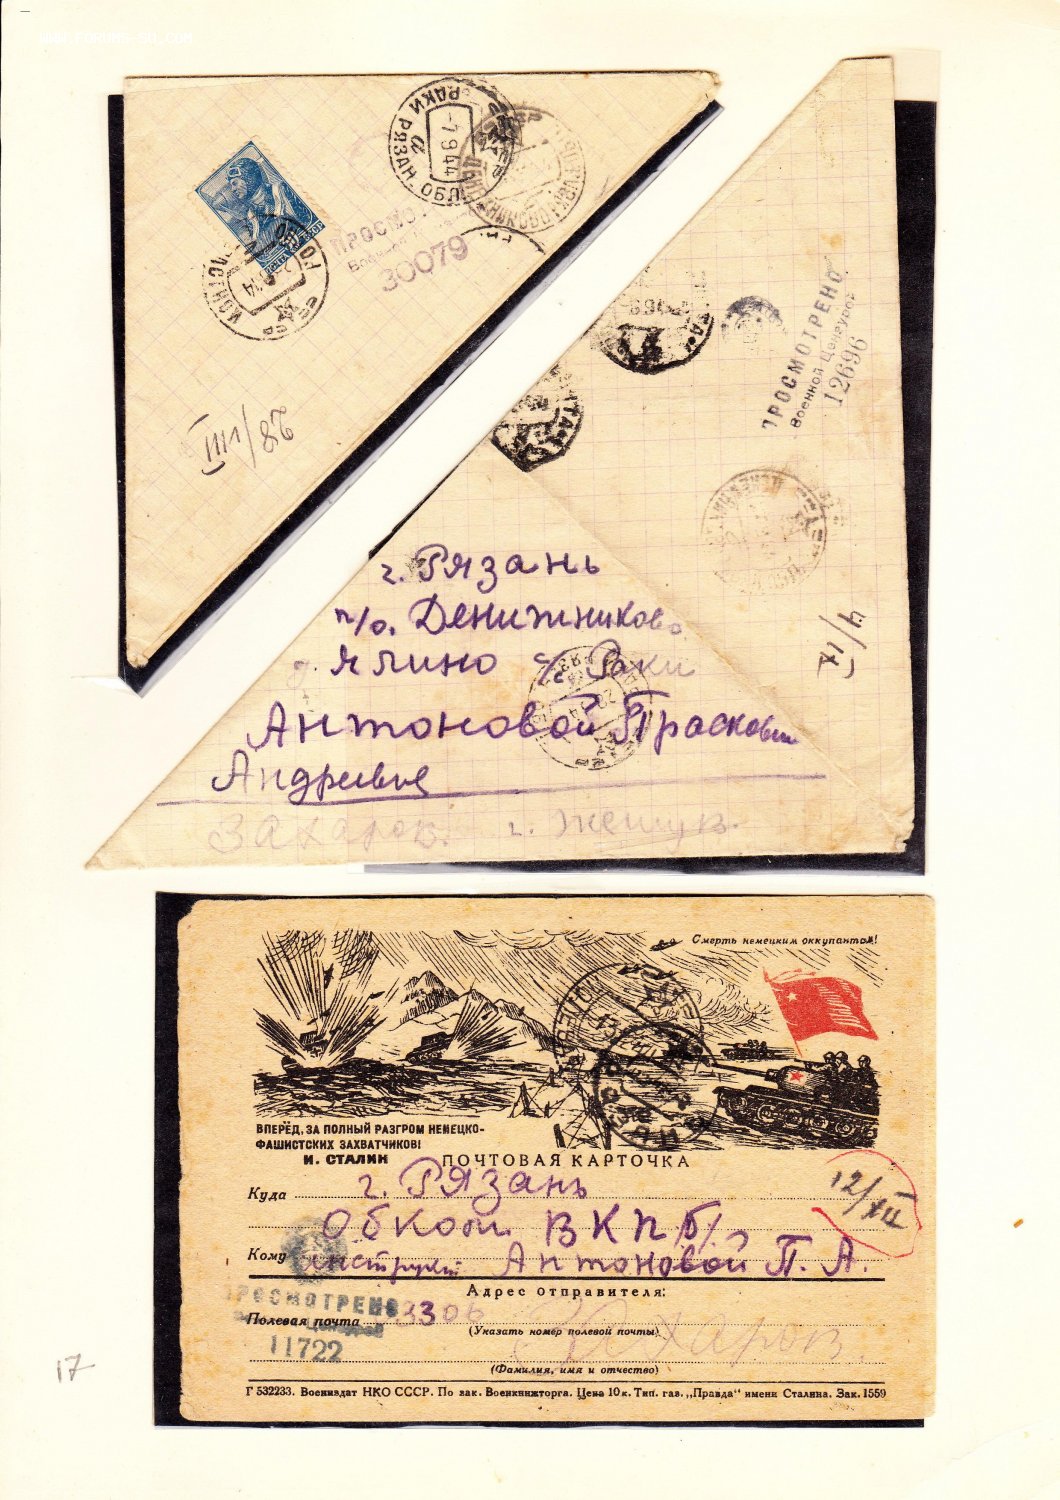 WWW.FORUMS-SU.COM
РАКИ РЯЗАН. ОБЛ.
-7.9.44
а
ПРОСМО
30079
28/VIII
ПРОСМОТРЕНО
Военной Цензурой
12696
4/IX
г. Рязань
п/о. Денижниково
Ялино с/с Раки
Антоновой Прасковьи
Андревне
Захаров. г. Жешув.
Смерть немецким оккупантам!
ВПЕРЁД, ЗА ПОЛНЫЙ РАЗГРОМ НЕМЕЦКО-
ФАШИСТСКИХ ЗАХВАТЧИКОВ!
И. СТАЛИН
ПОЧТОВАЯ КАРТОЧКА
12/XII
Куда г. Рязань
Обком ВКПб/
Кому инструкт Антоновой П. А.
Адрес отправителя:
ПРОСМОТРЕНО
11722
Полевая почта 3306
(Указать номер полевой почты)
Захаров.
(Фамилия, имя и отчество)
Г 532233. Воениздат НКО СССР. По зак. Военкнижторга. Цена 10 к. Тип. газ. „Правда" имени Сталина. Зак. 1559
17